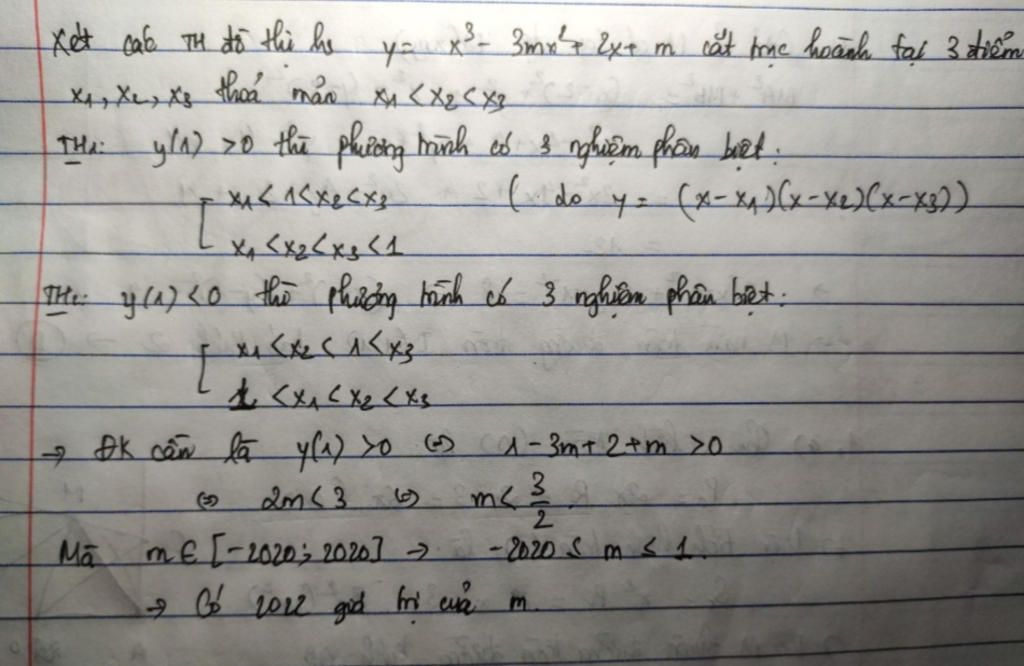 Xét các TH đồ thị hs y = x³ - 3mx² + 2x + m cắt trục hoành tại 3 điểm
x₁, x₂, x₃ thoả mãn x₁ < x₂ < x₃
TH₁: y(1) > 0 thì phương trình có 3 nghiệm phân biệt:
[ x₁ < 1 < x₂ < x₃ ( do y = (x - x₁)(x - x₂)(x - x₃))
x₁ < x₂ < x₃ < 1
TH₂: y(1) < 0 thì phương trình có 3 nghiệm phân biệt:
[ x₁ < x₂ < 1 < x₃
1 < x₁ < x₂ < x₃
→ ĐK cần là y(1) > 0 ⇔ 1 - 3m + 2 + m > 0
⇔ 2m < 3 ⇔ m < 3/2.
Mà m ∈ [-2020; 2020] → -2020 ≤ m ≤ 1.
→ Có 2022 giá trị của m.